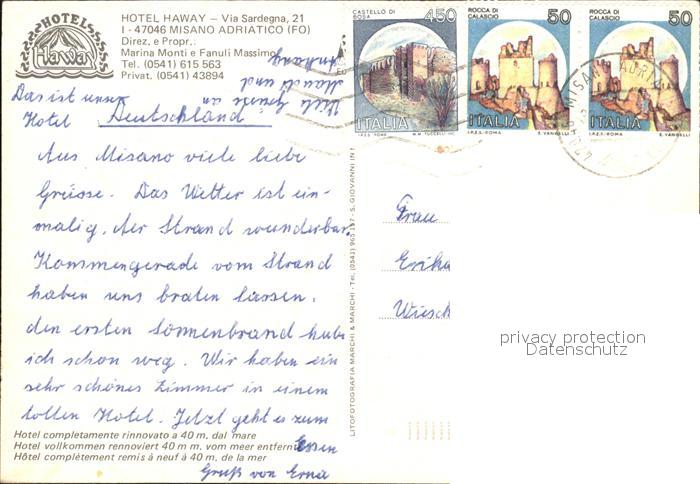 HOTEL HAWAY – Via Sardegna, 21
I - 47046 MISANO ADRIATICO (FO)
Direz. e Propr.:
Marina Monti e Fanuli Massimo
Tel. (0541) 615 563
Privat. (0541) 43894
HOTEL
Haway
CASTELLO DI
BOSA
450
ITALIA
I.P.Z.S. ROMA
M.M. TUCCELLI INC.
ROCCA DI
CALASCIO
50
ITALIA
I.P.Z.S. - ROMA
E. VANGELLI
ROCCA DI
CALASCIO
50
ITALIA
I.P.Z.S. - ROMA
E. VANGELLI
Viele Grüsse an
und
Das ist unser
Hotel
Deutschland
Aus Misano viele liebe
Grüsse. Das Wetter ist ein-
malig, der Strand wunderbar.
Kommen gerade vom Strand
haben uns braten lassen,
den ersten Sonnenbrand habe
ich schon weg. Wir haben ein
sehr schönes Zimmer in einem
tollen Hotel. Jetzt geht es zum
Essen
Gruß von Erna
Hotel completamente rinnovato a 40 m. dal mare
Hotel vollkommen rennoviert 40 m m. vom meer entfernt
Hôtel complètement remis à neuf à 40 m. de la mer
LITOFOTOGRAFIA MARCHI & MARCHI - Tel. (0541) 965 - S. GIOVANNI IN
Frau
Erika
Wiesch
privacy protection
Datenschutz